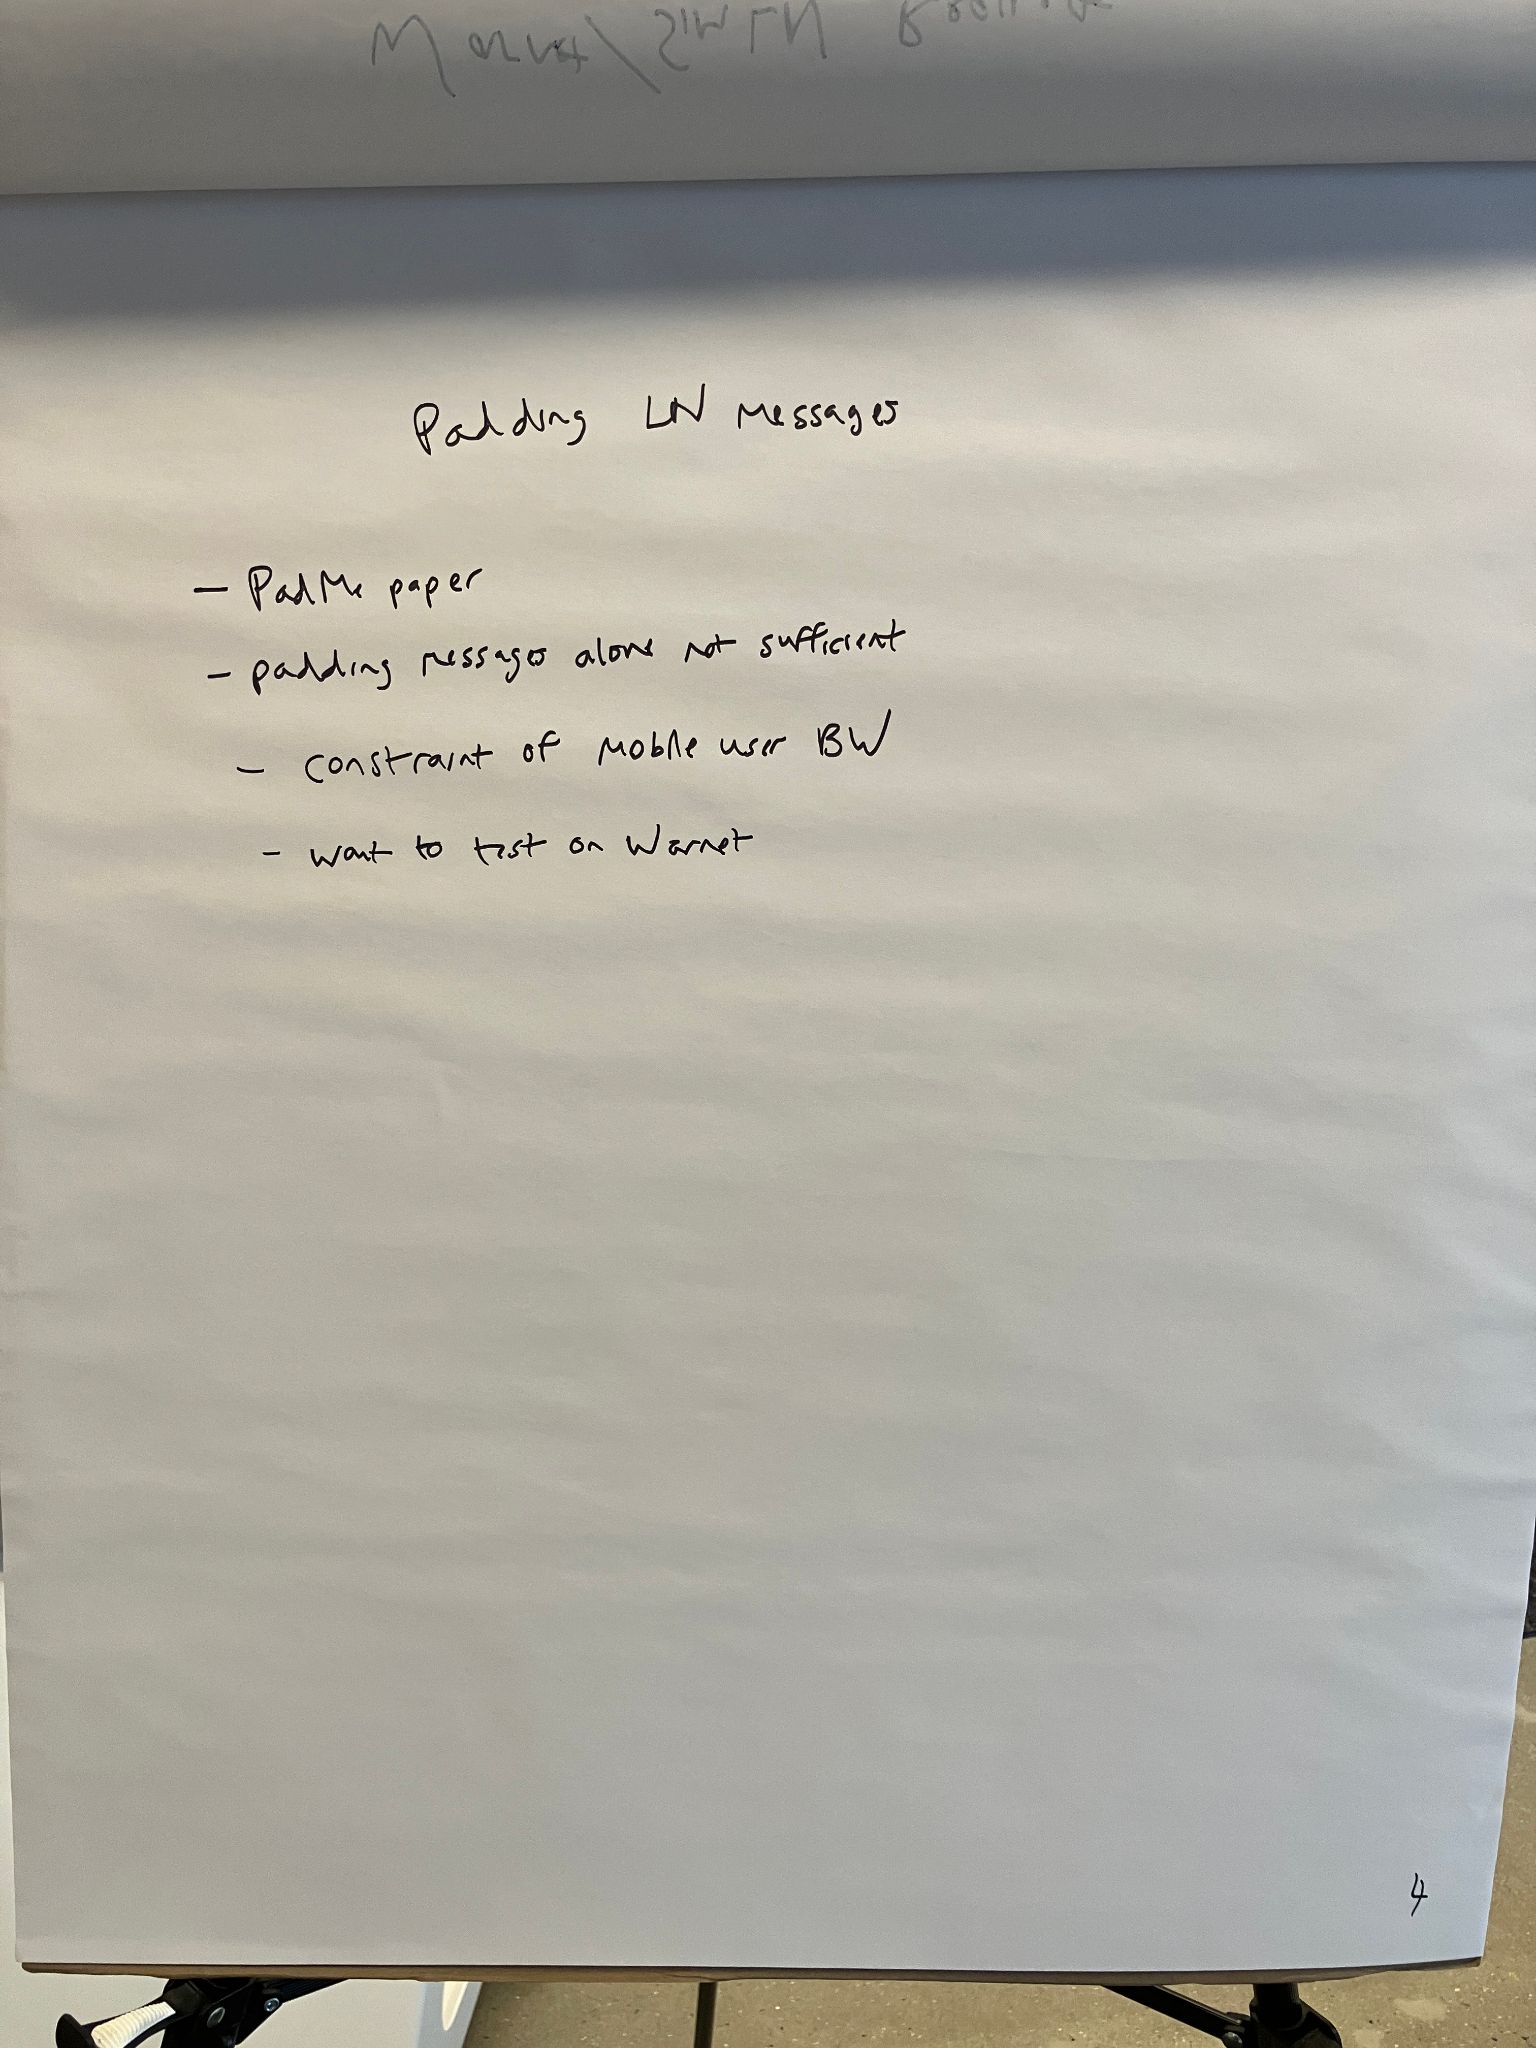 Padding LN Messages
- PadMe paper
- padding messages alone not sufficient
- constraint of mobile user BW
- want to test on Warnet
4